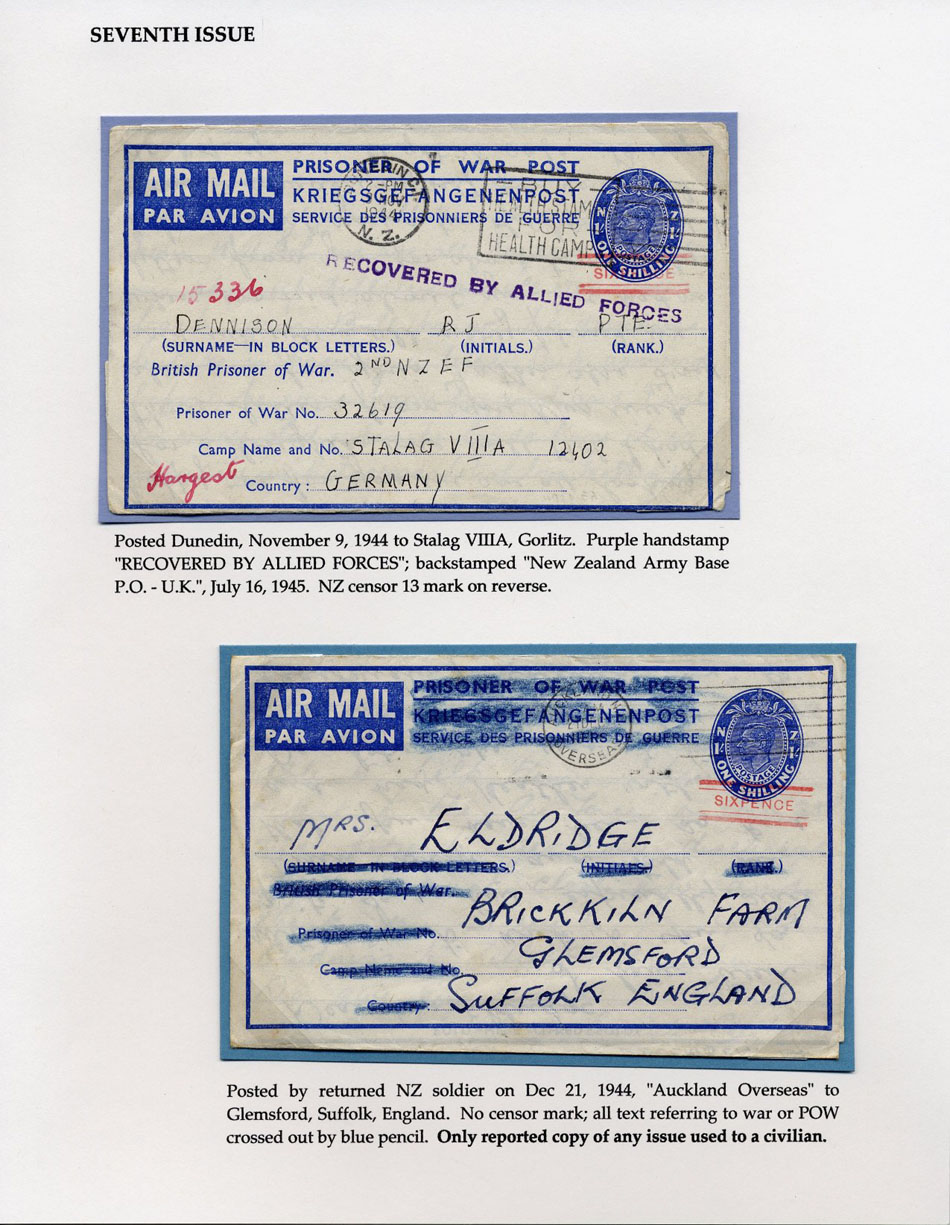 SEVENTH ISSUE
AIR MAIL
PAR AVION
PRISONER OF WAR POST
KRIEGSGEFANGENENPOST
SERVICE DES PRISONNIERS DE GUERRE
2-PM
NOV
1944
N. Z.
HEALTH STAM
FOR
HEALTH CAMP
NZ
POSTAGE
NZ
ONE SHILLING
RECOVERED BY ALLIED FORCES
15336
DENNISON RJ PTE.
(SURNAME—IN BLOCK LETTERS.) (INITIALS.) (RANK.)
British Prisoner of War. 2ND N Z E F
Prisoner of War No. 32619
Camp Name and No. STALAG VIIIA 12402
Hargest
Country: GERMANY
Posted Dunedin, November 9, 1944 to Stalag VIIIA, Gorlitz. Purple handstamp
"RECOVERED BY ALLIED FORCES"; backstamped "New Zealand Army Base
P.O. - U.K.", July 16, 1945. NZ censor 13 mark on reverse.
AIR MAIL
PAR AVION
PRISONER OF WAR POST
KRIEGSGEFANGENENPOST
SERVICE DES PRISONNIERS DE GUERRE
OVERSEAS
NZ
POSTAGE
NZ
ONE SHILLING
SIXPENCE
MRS. ELDRIDGE
(SURNAME—IN BLOCK LETTERS.) (INITIALS.) (RANK.)
British Prisoner of War.
BRICKKILN FARM
Prisoner of War No.
GLEMSFORD
Camp Name and No.
Country: SUFFOLK ENGLAND
Posted by returned NZ soldier on Dec 21, 1944, "Auckland Overseas" to
Glemsford, Suffolk, England. No censor mark; all text referring to war or POW
crossed out by blue pencil. Only reported copy of any issue used to a civilian.